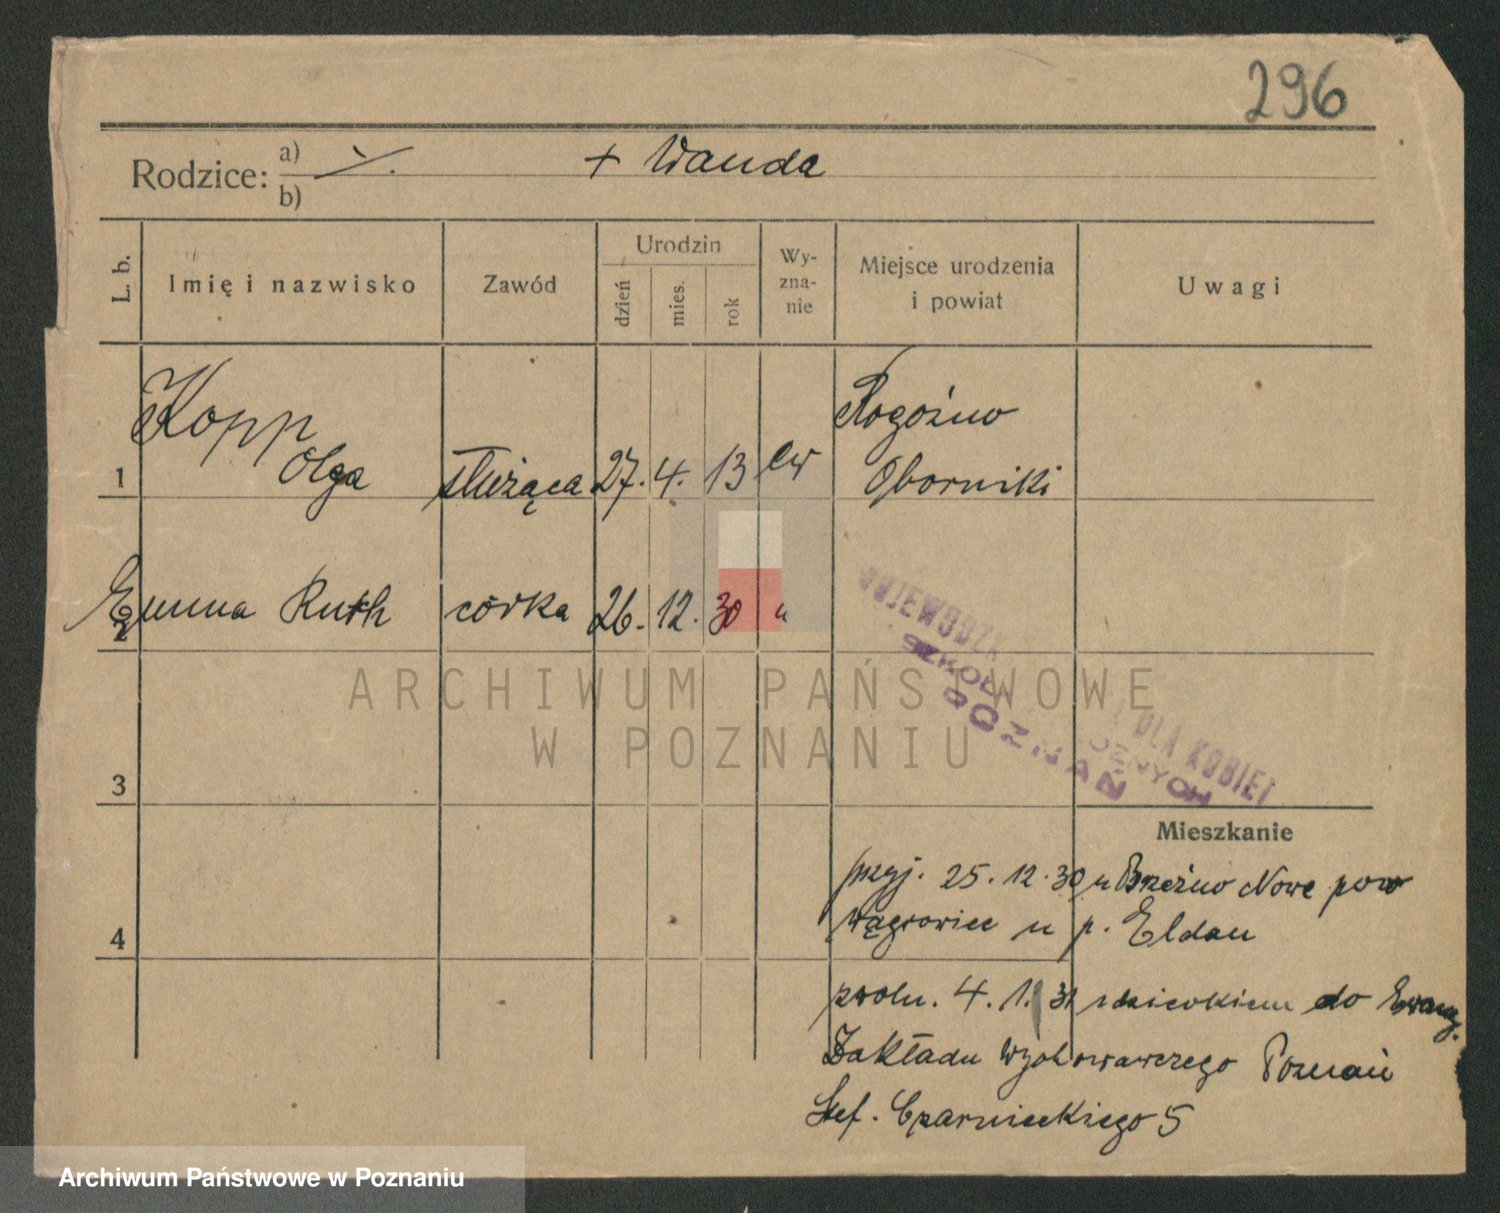 296
Rodzice: a) ./. + Wanda
b)
L. b. Imię i nazwisko Zawód Urodzin dzień mies. rok Wyznanie Miejsce urodzenia i powiat Uwagi
Kopp Rogoźno
1 Olga służąca 27. 4. 13 ew Oborniki
2 Emma Ruth córka 26. 12. 30 "
WOJEWÓDZK DLA KOBIET
SZKOŁ POŁOŻNYCH
POZNAŃ
ARCHIWUM PAŃSTWOWE
W POZNANIU
3
Mieszkanie
4
przyj. 25. 12. 30 z Brzeźno Nowe pow
Wągrowiec u p. Eldau
zwoln. 4. 1. 31 z dzieckiem do Ewang.
Zakładu Wychowawczego Poznań
Stef. Czarnieckiego 5
Archiwum Państwowe w Poznaniu